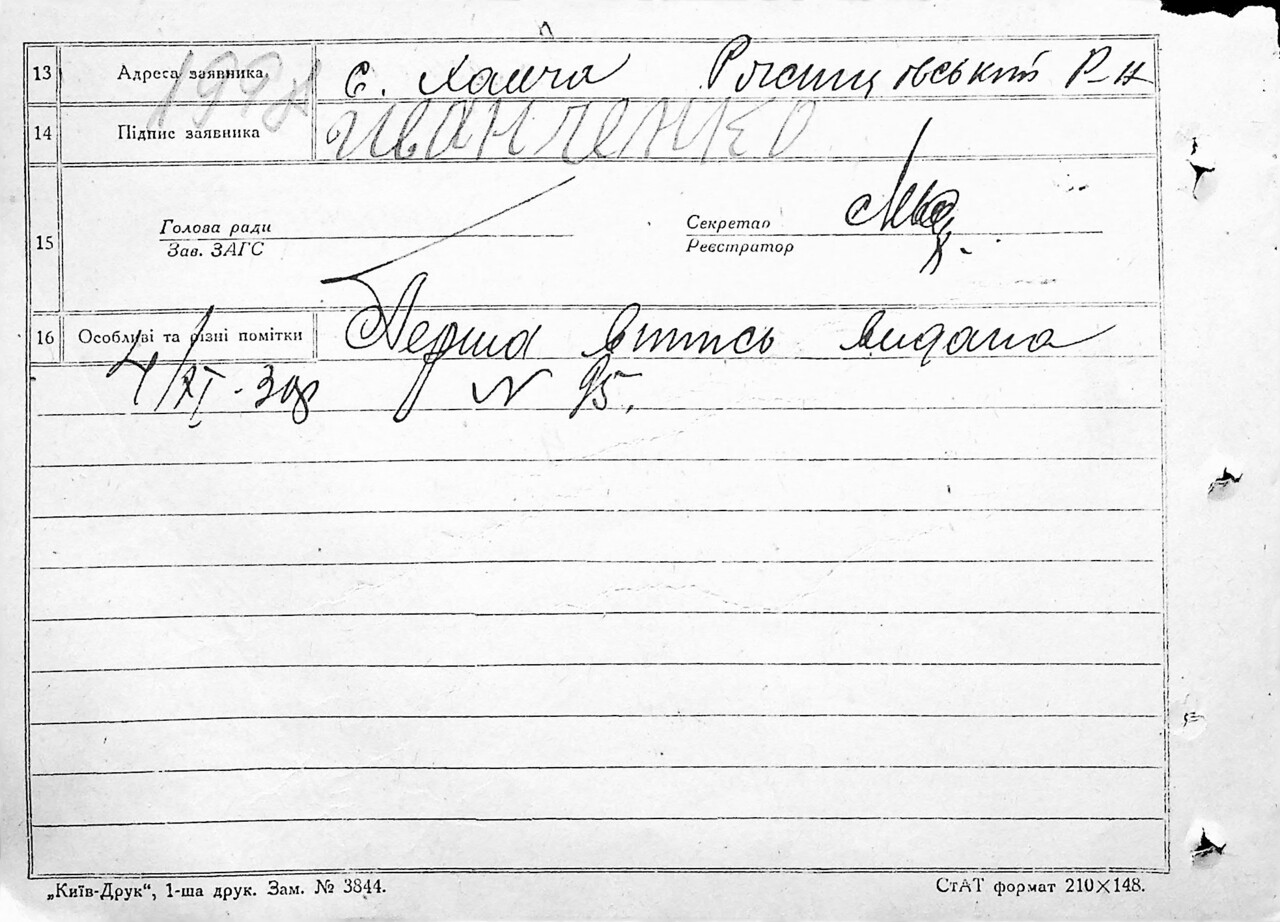 13 Адреса заявника с. Халча Р-н
14 Підпис заявника Иванченко
15 Голова ради Зав. ЗАГС Секретар Реєстратор
16 Особливі та різні помітки Перша витись видана
4/XI-30р N 95.
„Київ-Друк“, 1-ша друк. Зам. № 3844. СтАТ формат 210×148.